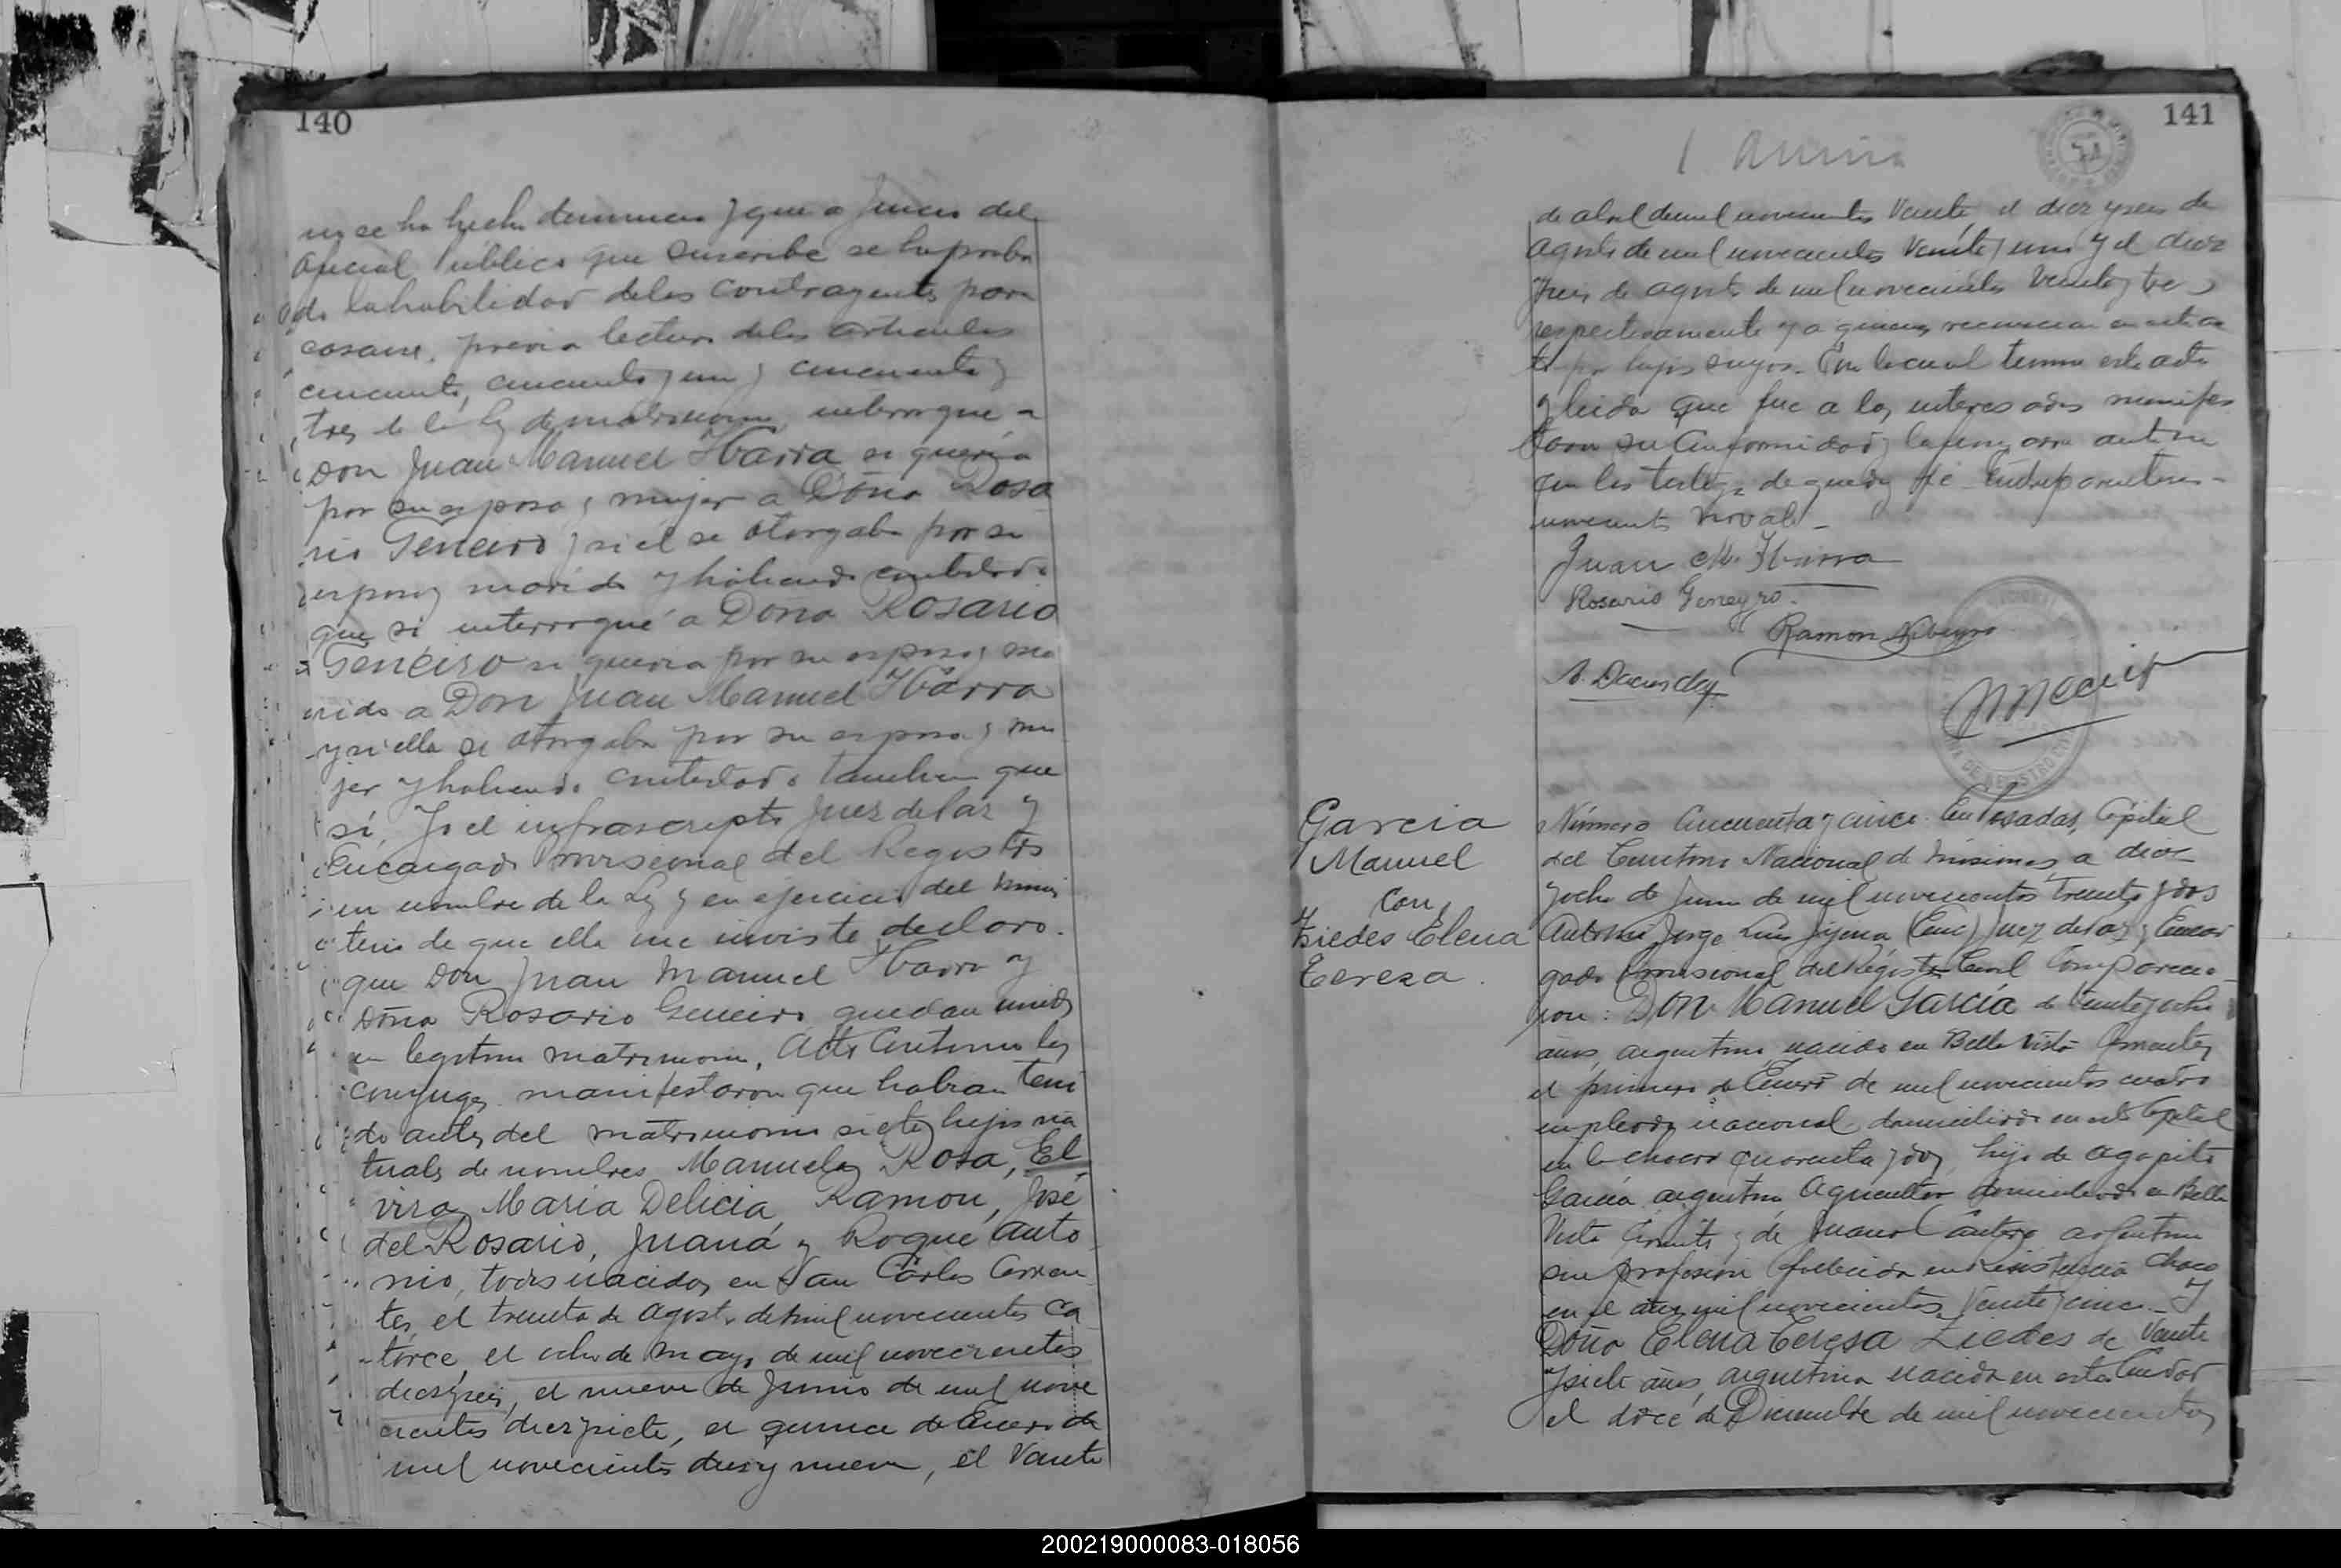 140
no se ha hecho denuncia y que a juicio del
Oficial Público que suscribe se ha proba
do la habilidad de los contrayentes para
casarse, previa lectura de los articulos
cincuenta, cincuenta y uno y cincuenta y
tres de la ley de matrimonio interrogué a
Don Juan Manuel Ibarra si queria
por su esposa y mujer a Doña Rosa
rio Geneiro y si él se otorgaba por su
esposo y marido y habiendo contestado
que si interrogué a Doña Rosario
Geneiro si queria por su esposo y ma
rido a Don Juan Manuel Ibarra
y si ella se otorgaba por su esposa y mu
jer y habiendo contestado tambien que
sí, Yo el infrascripto Juez de Paz y
Encargado Provisional del Registro
en nombre de la Ley y en ejercicio del minis
terio de que ella me inviste declaro
que Don Juan Manuel Ibarra y
Doña Rosario Geneiro quedan unidos
en legitimo matrimonio. Acto continuo los
conyuges manifestaron que habian teni
do antes del matrimonio siete hijos na
turales de nombres Manuela Rosa, El
vira, Maria Delicia, Ramon, José
del Rosario, Juana y Roque Anto
nio, todos nacidos en San Carlos Corrien
tes, el treinta de Agosto de mil novecientos ca
torce, el ocho de Mayo de mil novecientos
diesyseis, el nueve de Junio de mil nove
cientos diezysiete, el quince de Enero de
mil novecientos diesynueve, el Veinte
141
de abril de mil novecientos Veinte, el diez y seis de
Agosto de mil novecientos Veinte y uno y el diez
y seis de agosto de mil novecientos Veinte y tres
respectivamente y a quienes reconocian en este ac
to por hijos suyos. Con lo cual termino este acto
y leida que fue a los interesados manifes
taron su conformidad y la firmaron ante mi
con los testigos de que doy fé. Entre parentesis
novecientos no vale
Juan M. Ibarra
Rosario Geneyro
Ramon
Garcia
Manuel
con
Ziedes Elena
Teresa
Número Cincuenta y cinco. En Posadas, Capital
del Territorio Nacional de Misiones, a diez
y ocho de Junio de mil novecientos treinta y dos
Ante mi Jorge Luis Juez de Paz y Encar
gado Provisional del Registro Civil Comparecie
ron: Don Manuel Garcia de Veinte y ocho
años, argentino nacido en Bella Vista Corrientes
el primero de Enero de mil novecientos cuatro
empleado nacional, domiciliado en esta Capital
en la chacra cuarenta y dos, hijo de Agapito
Garcia, argentino, Agricultor, domiciliado en Bella
Vista Corrientes y de Juana Cantero argentina
sin profesion fallecida en Resistencia Chaco
en el año mil novecientos Veinte y cinco Y
Doña Elena Teresa Ziedes de Veinte
y siete años, argentina nacida en esta Ciudad
el doce de Diciembre de mil novecientos
200219000083-018056